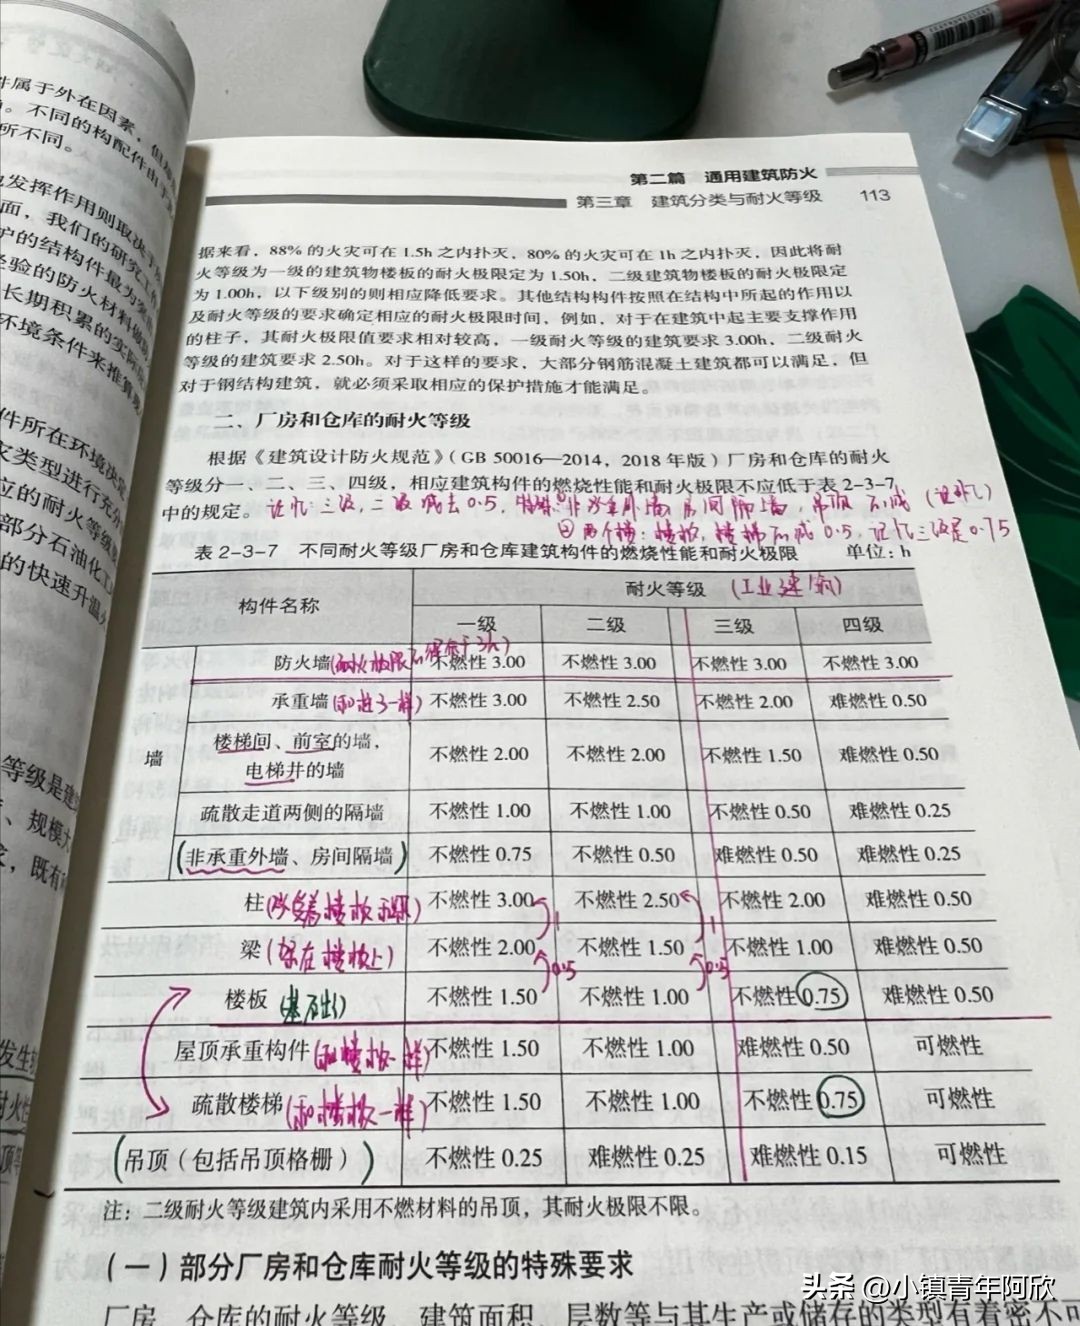 件属于外在因素，但
。不同的构配件由于
所不同。
发挥作用则取决于
面，我们的研究工作
护的结构件最为突出
经验的防火材料做
长期积累的实际
环境条件来推算
件所在环境决定
类型进行充分
应的耐火等级
部分石油化工
的快速升温
等级是
、规模大
，既有
第二篇 通用建筑防火
第三章 建筑分类与耐火等级 113
据来看，88%的火灾可在1.5h之内扑灭，80%的火灾可在1h之内扑灭，因此将耐
火等级为一级的建筑物楼板的耐火极限定为1.50h，二级建筑物楼板的耐火极限定
为1.00h，以下级别的则相应降低要求。其他结构构件按照在结构中所起的作用以
及耐火等级的要求确定相应的耐火极限时间，例如，对于在建筑中起主要支撑作用
的柱子，其耐火极限值要求相对较高，一级耐火等级的建筑要求3.00h，二级耐火
等级的建筑要求2.50h。对于这样的要求，大部分钢筋混凝土建筑都可以满足，但
对于钢结构建筑，就必须采取相应的保护措施才能满足。
二、厂房和仓库的耐火等级
根据《建筑设计防火规范》（GB 50016—2014，2018年版）厂房和仓库的耐火
等级分一、二、三、四级，相应建筑构件的燃烧性能和耐火极限不应低于表2-3-7
中的规定。 记忆：三级，二级减去0.5，特殊：非承重外墙，房间隔墙，吊顶不减（记外）
②两个楼：楼板，楼梯不减0.5，记忆三级是0.75
表2-3-7 不同耐火等级厂房和仓库建筑构件的燃烧性能和耐火极限 单位：h
构件名称 耐火等级（工业建筑）
一级 二级 三级 四级
防火墙（耐火极限不得低于3h） 不燃性3.00 不燃性3.00 不燃性3.00 不燃性3.00
承重墙（和柱子一样） 不燃性3.00 不燃性2.50 不燃性2.00 难燃性0.50
墙 楼梯间、前室的墙， 不燃性2.00 不燃性2.00 不燃性1.50 难燃性0.50
电梯井的墙
疏散走道两侧的隔墙 不燃性1.00 不燃性1.00 不燃性0.50 难燃性0.25
（非承重外墙、房间隔墙） 不燃性0.75 不燃性0.50 难燃性0.50 难燃性0.25
柱 不燃性3.00 不燃性2.50 不燃性2.00 难燃性0.50
梁 不燃性2.00 不燃性1.50 不燃性1.00 难燃性0.50
0.5 0.5
楼板（基础） 不燃性1.50 不燃性1.00 不燃性0.75 难燃性0.50
屋顶承重构件（和楼板一样） 不燃性1.50 不燃性1.00 难燃性0.50 可燃性
疏散楼梯（和楼板一样） 不燃性1.50 不燃性1.00 不燃性0.75 可燃性
（吊顶（包括吊顶格栅）） 不燃性0.25 难燃性0.25 难燃性0.15 可燃性
注：二级耐火等级建筑内采用不燃材料的吊顶，其耐火极限不限。
（一）部分厂房和仓库耐火等级的特殊要求
厂房、仓库的耐火等级、建筑面积、层数等与其生产或储存的类型有着密不可
头条 @小镇青年阿欣